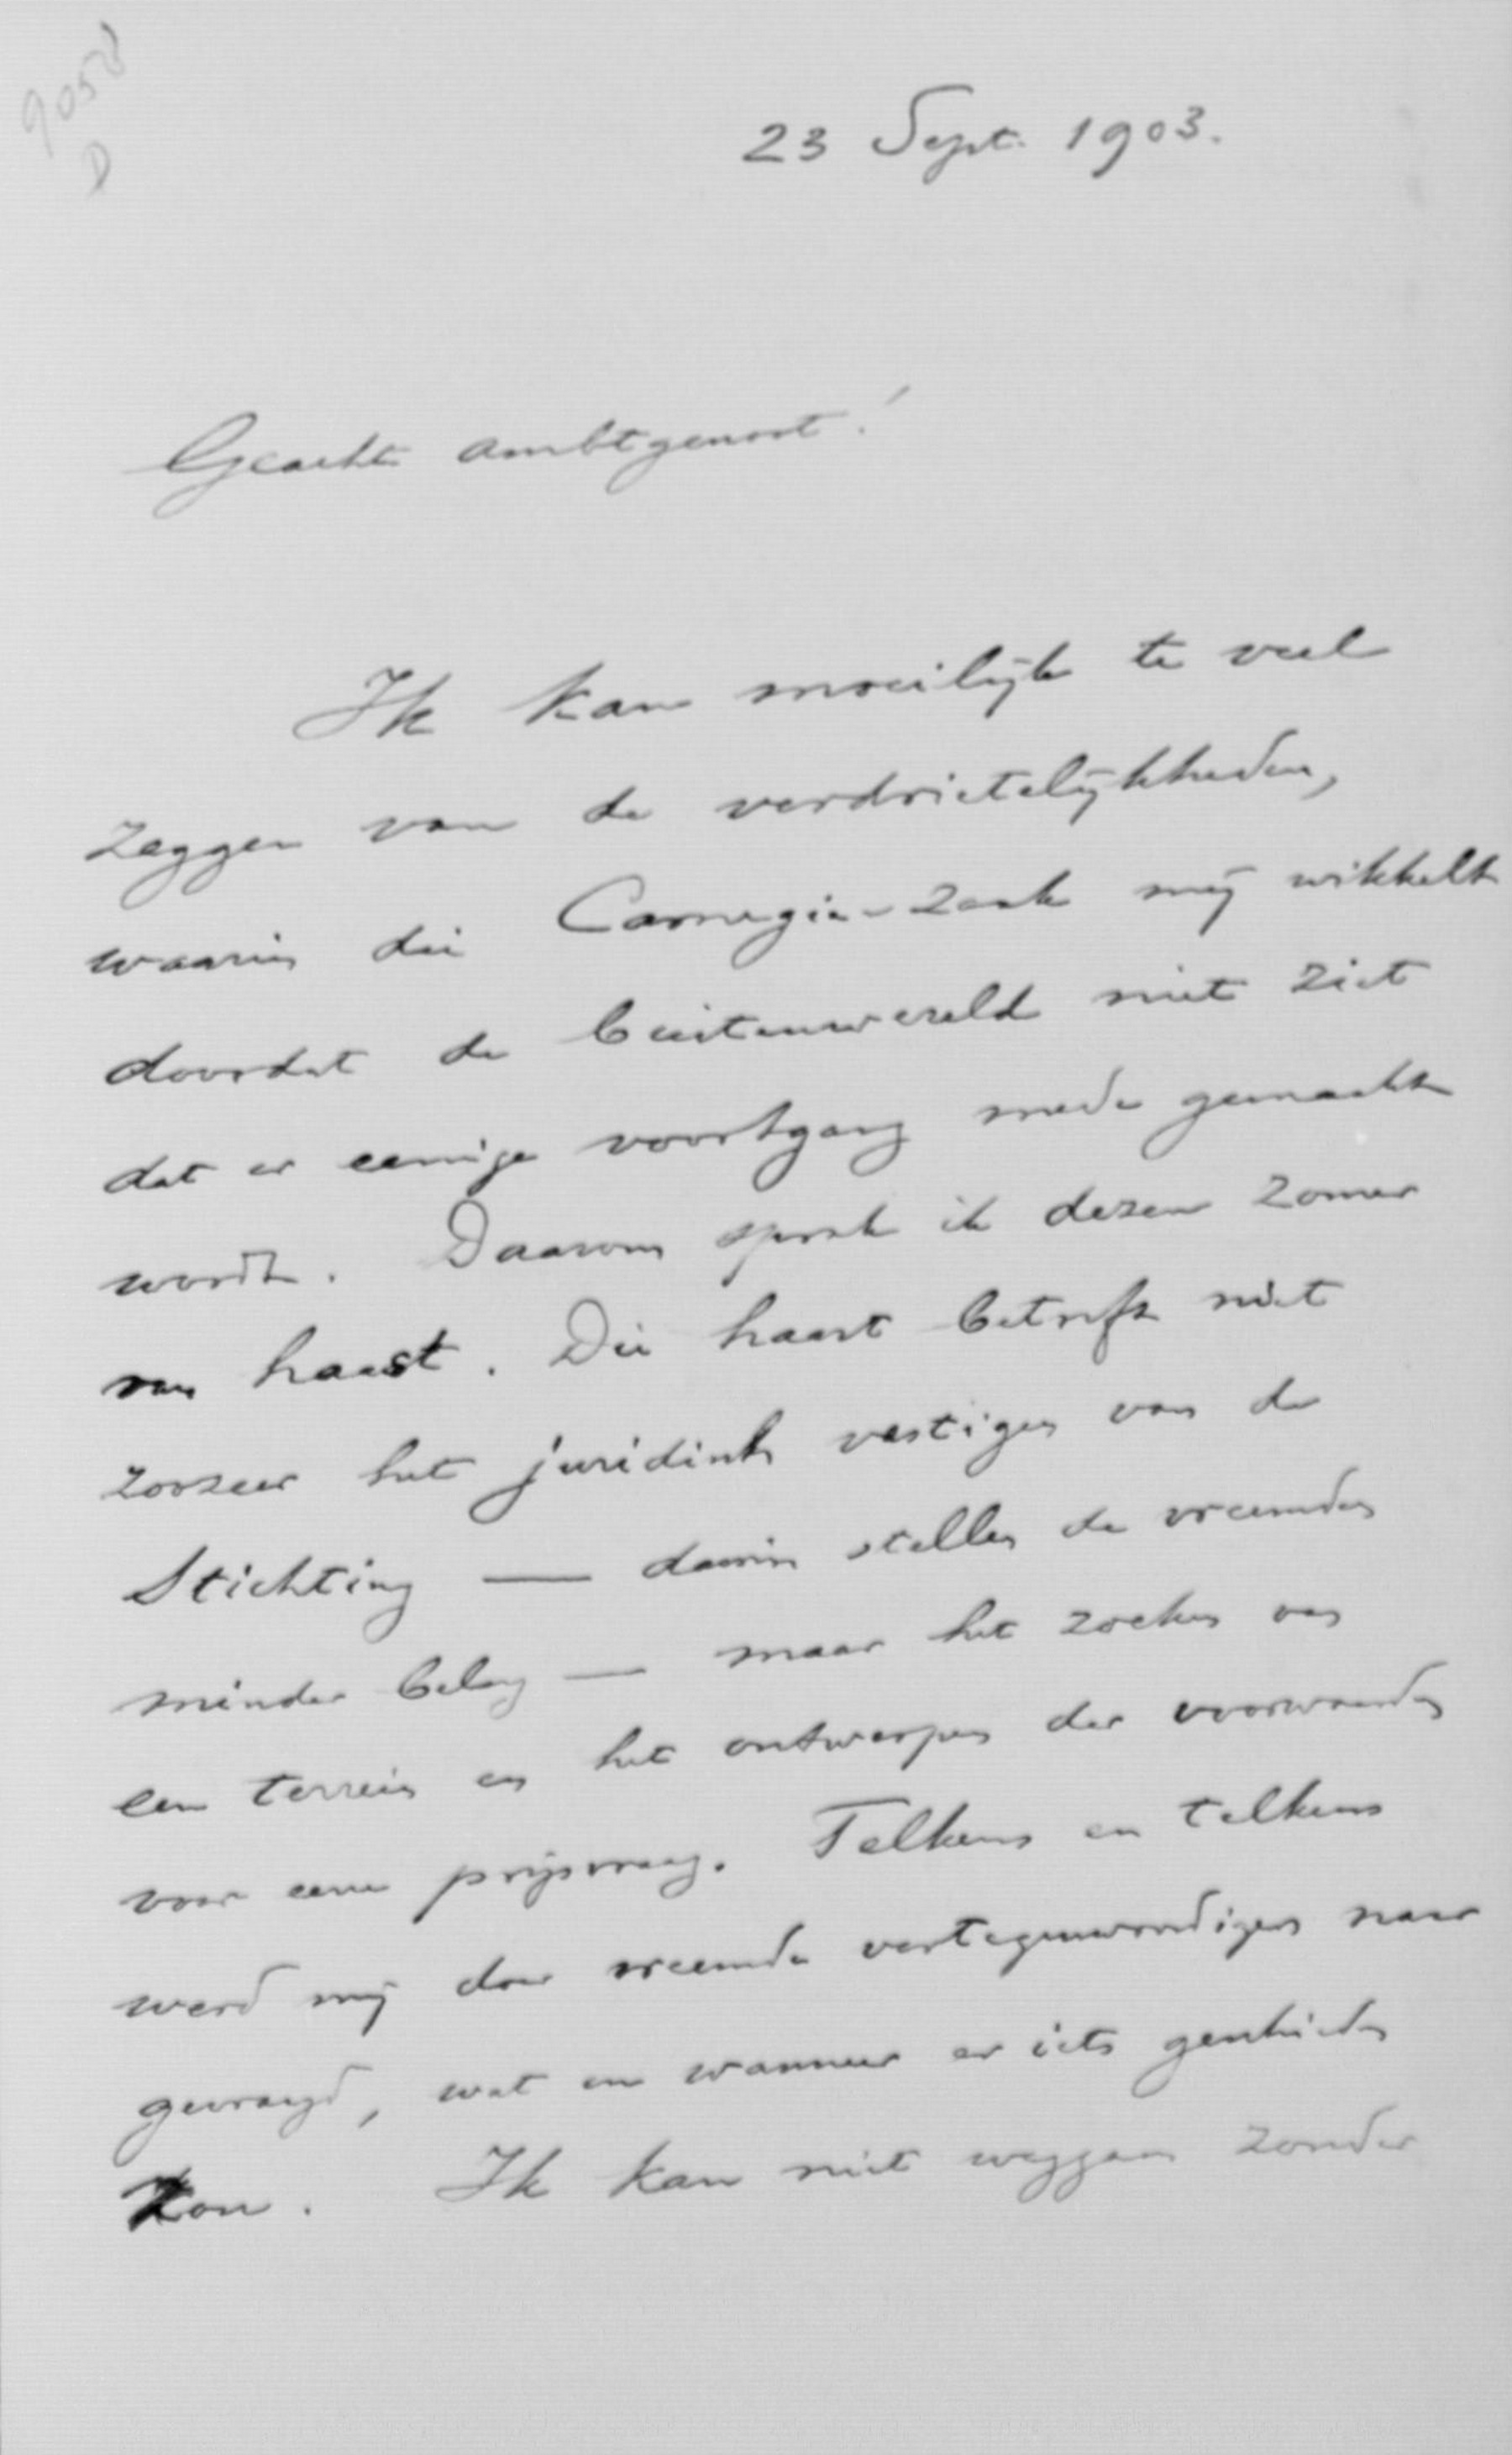 9058
D
23 Sept. 1903.
Geachte ambtgenoot!
Ik kan moeilijk te veel
zeggen van de verdrietelijkheden,
waarin die Carnegie-zaak mij wikkelt
doordat de buitenwereld niet ziet
dat er eenige voortgang mede gemaakt
wordt. Daarom sprak ik dezen zomer
van haast. Die haast betreft niet
zoozeer het juridisch vestigen van de
Stichting — daarin stellen de vreemden
minder belang — maar het zoeken van
een terrein en het ontwerpen der voorwaarden
voor eene prijsvraag. Telkens en telkens
werd mij door vreemde vertegenwoordigers naar
gevraagd, wat en wanneer er iets geschieden
zou. Ik kan niet weggaan zonder